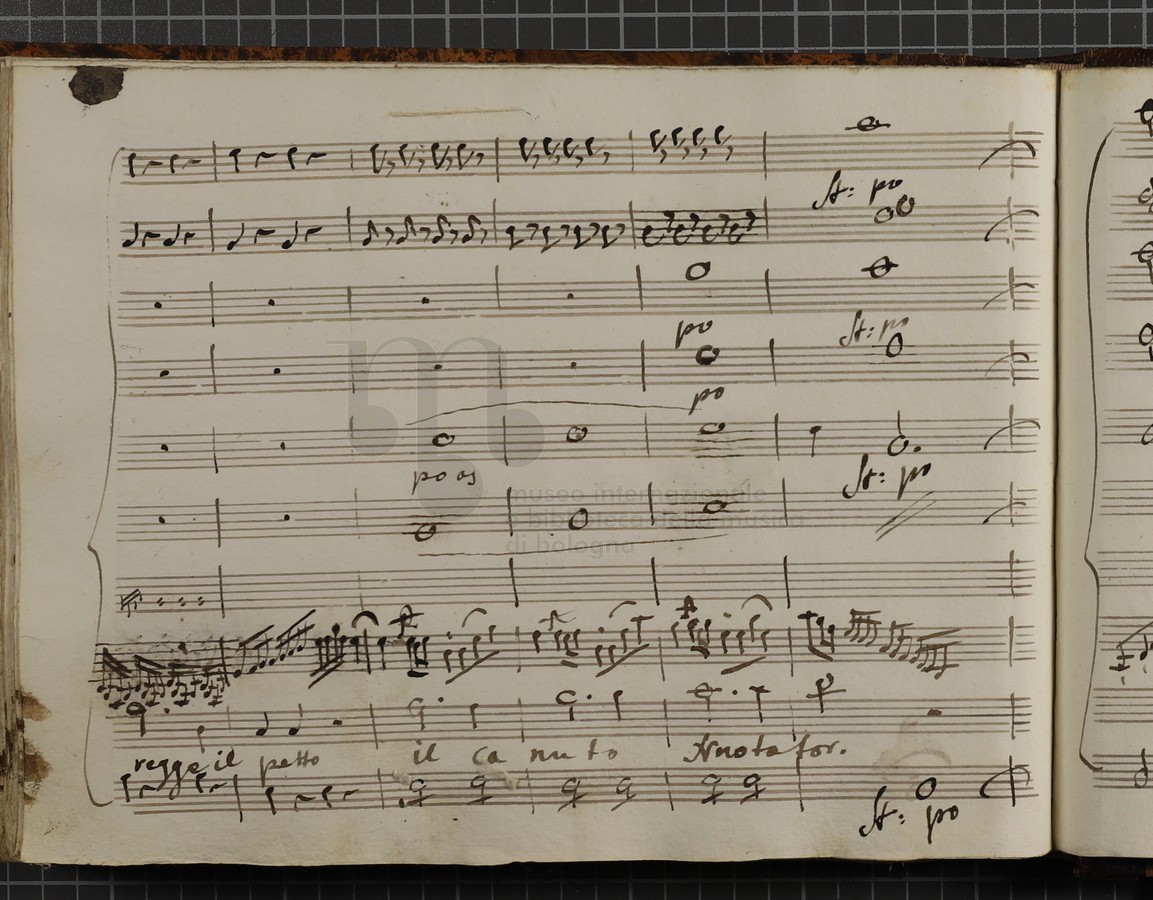 St: po
po
St: po
po
po as
St: po
museo internazionale
e biblioteca della musica
di bologna
regge il petto il ca nu to for.
St: po